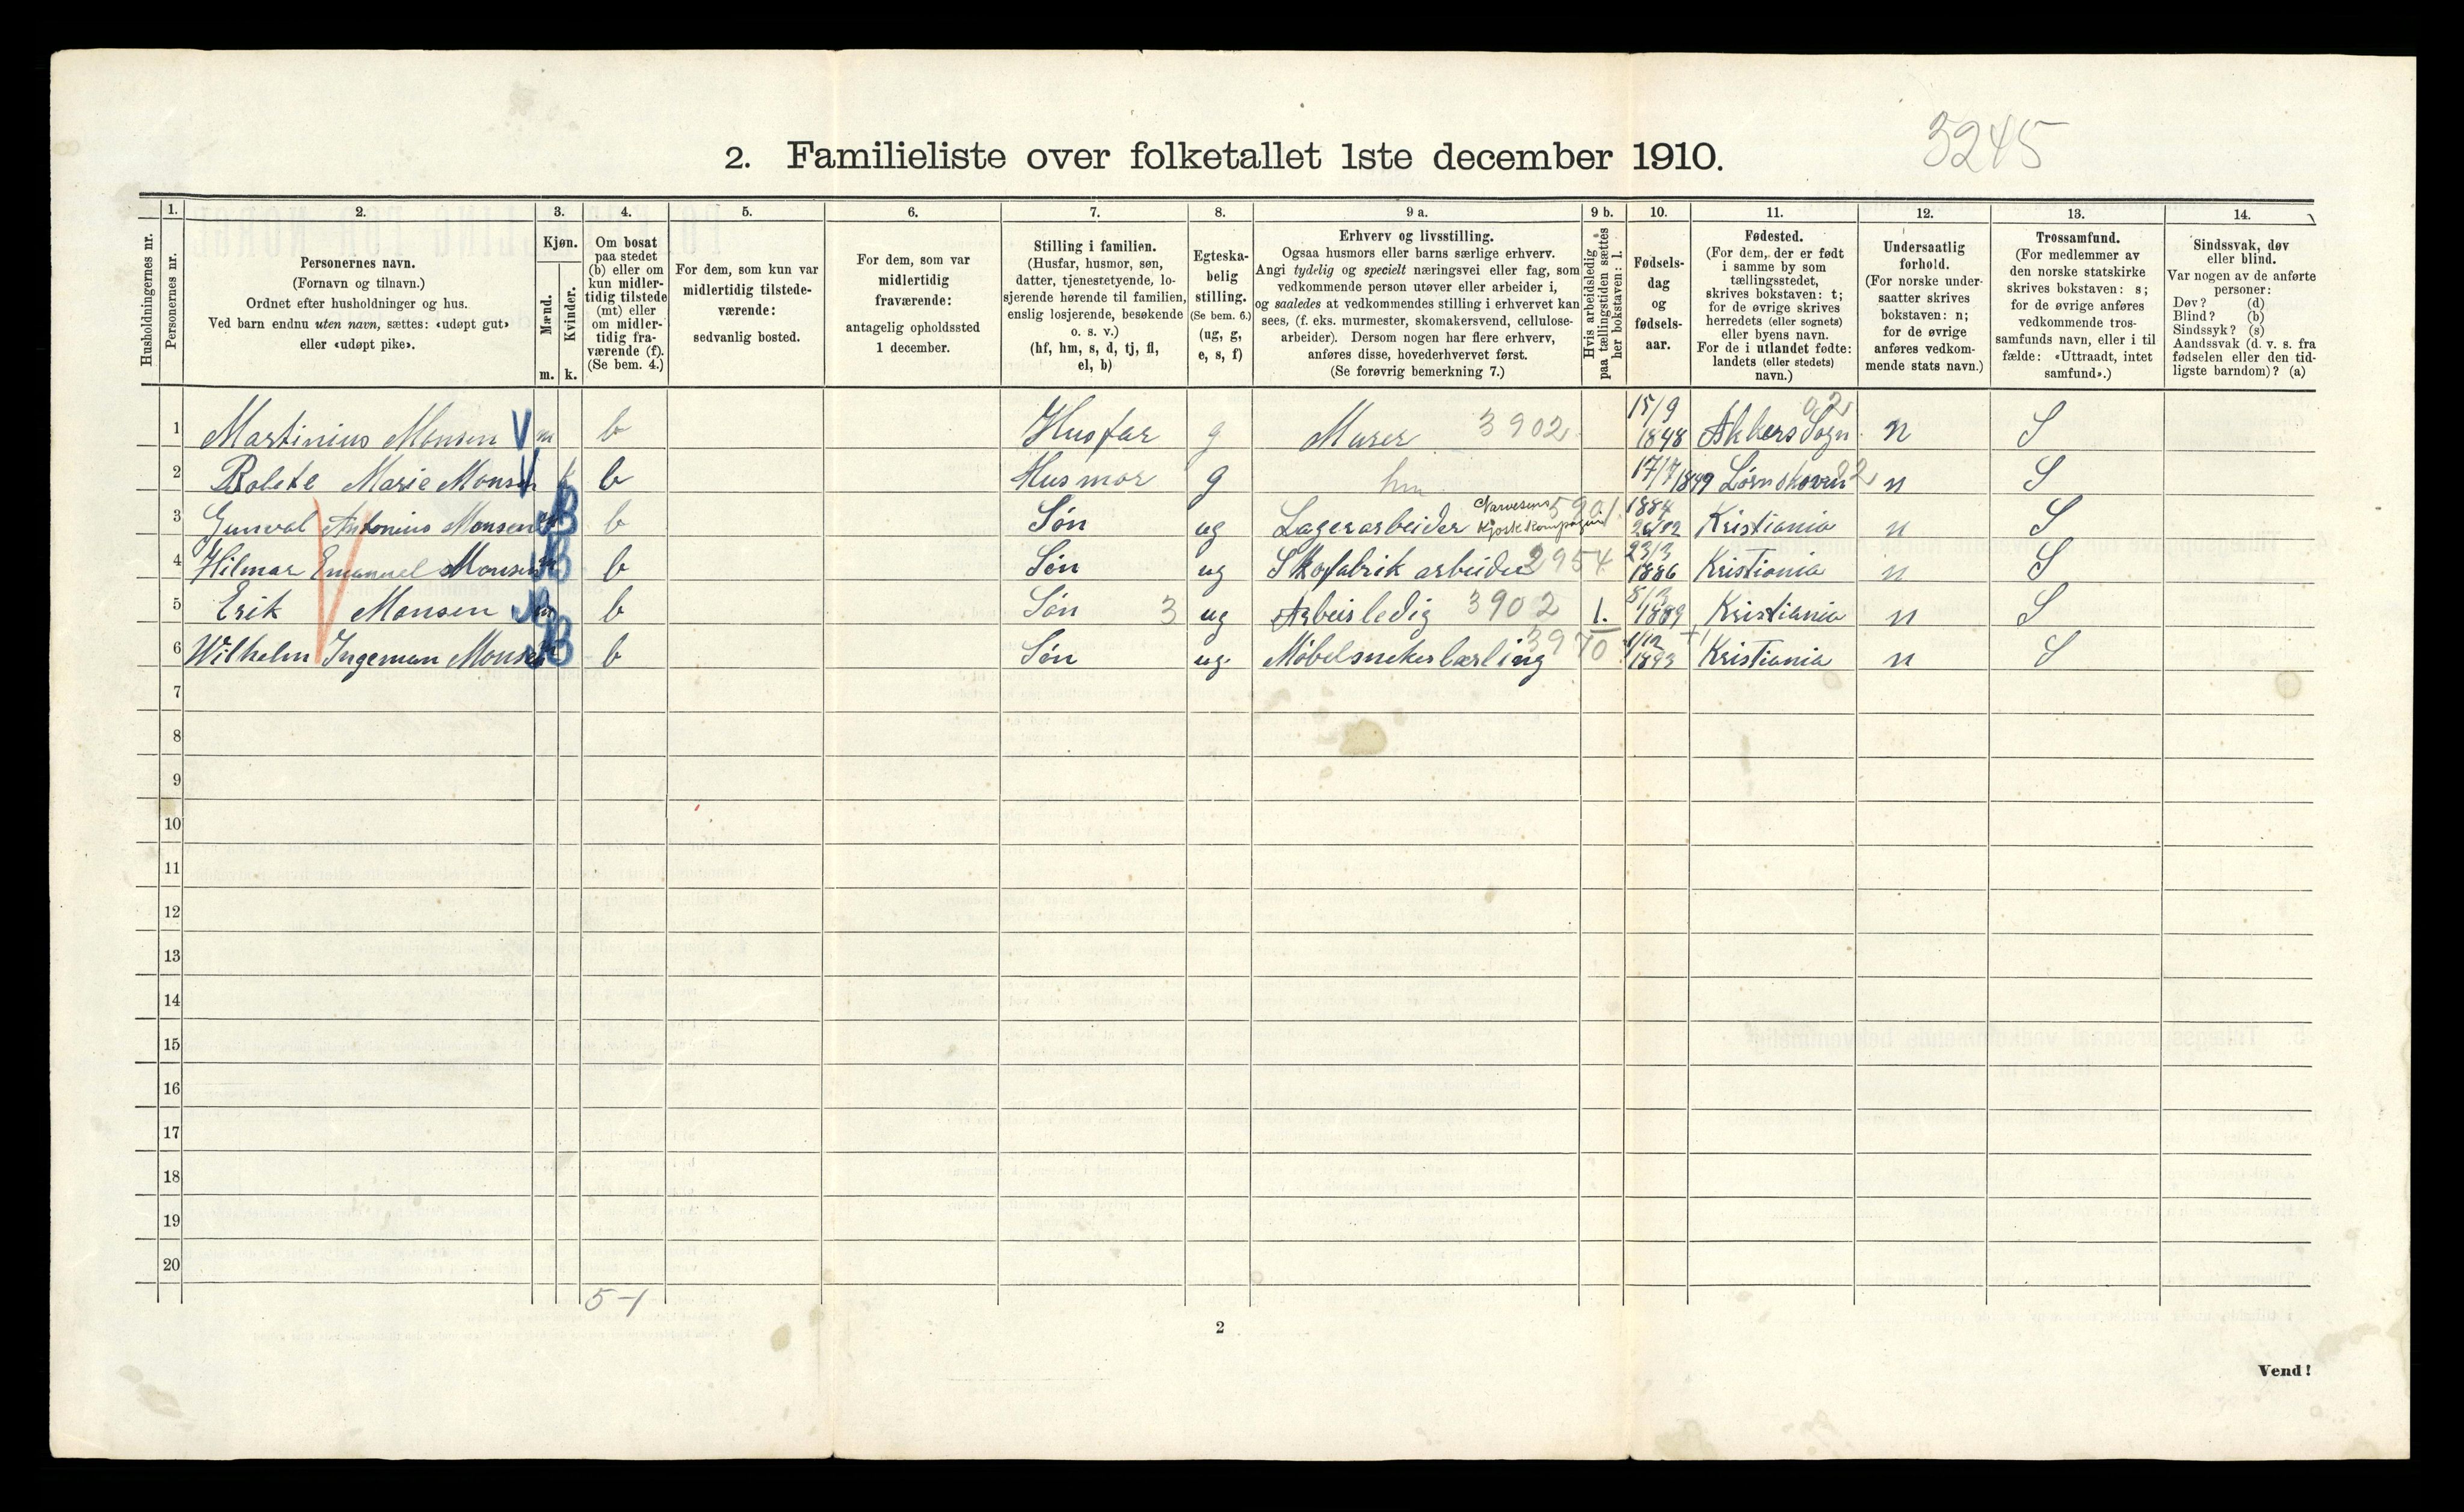 3245
2. Familieliste over folketallet 1ste december 1910.
Husholdningernes nr.
1.
Personernes nr.
2.
Personernes navn.
(Fornavn og tilnavn.)
Ordnet efter husholdninger og hus.
Ved barn endnu uten navn, sættes: «udøpt gut»
eller «udøpt pike».
3.
Kjøn.
Mænd.
Kvinder.
m. k.
4.
Om bosat
paa stedet
(b) eller om
kun midler-
tidig tilstede
(mt) eller
om midler-
tidig fra-
værende (f).
(Se bem. 4.)
5.
For dem, som kun var
midlertidig tilstede-
værende:
sedvanlig bosted.
6.
For dem, som var
midlertidig
fraværende:
antagelig opholdssted
1 december.
7.
Stilling i familien.
(Husfar, husmor, søn,
datter, tjenestetyende, lo-
sjerende hørende til familien,
enslig losjerende, besøkende
o. s. v.)
(hf, hm, s, d, tj, fl,
el, b)
8.
Egteska-
belig
stilling.
(Se bem. 6.)
(ug, g,
e, s, f)
9 a.
Erhverv og livsstilling.
Ogsaa husmors eller barns særlige erhverv.
Angi tydelig og specielt næringsvei eller fag, som
vedkommende person utøver eller arbeider i,
og saaledes at vedkommendes stilling i erhvervet kan
sees, (f. eks. murmester, skomakersvend, cellulose-
arbeider). Dersom nogen har flere erhverv,
anføres disse, hovederhvervet først.
(Se forøvrig bemerkning 7.)
9 b.
Hvis arbeidsledig
paa tællingstiden sættes
her bokstaven: l.
10.
Fødsels-
dag
og
fødsels-
aar.
11.
Fødested.
(For dem, der er født
i samme by som
tællingsstedet,
skrives bokstaven: t;
for de øvrige skrives
herredets (eller sognets)
eller byens navn.
For de i utlandet fødte:
landets (eller stedets)
navn.)
12.
Undersaatlig
forhold.
(For norske under-
saatter skrives
bokstaven: n;
for de øvrige
anføres vedkom-
mende stats navn.)
13.
Trossamfund.
(For medlemmer av
den norske statskirke
skrives bokstaven: s;
for de øvrige anføres
vedkommende tros-
samfunds navn, eller i til
fælde: «Uttraadt, intet
samfund».)
14.
Sindssvak, døv
eller blind.
Var nogen av de anførte
personer:
Døv? (d)
Blind? (b)
Sindssyk? (s)
Aandssvak (d. v. s. fra
fødselen eller den tid-
ligste barndom)? (a)
1 Martinius Monsen V m b Husfar g Murer 3902 15/9 1848 Akkers Sogn 02 n S
2 Bolete Marie Monsen V k b Husmor g hm 17/7 1849 Lørnskoven n S
3 Gunval Antonius Monsen m b Søn ug Lagerarbeider Narvesens Kjoskkompagni 1884 Kristiania n S
4 Hilmar Emanuel Monsen m b Søn ug Skofabrik arbeider 2954 23/3 1886 Kristiania n S
5 Erik Monsen m b Søn 3 ug Arbeisledig 3902 l. 1889 Kristiania n S
6 Wilhelm Ingeman Monsen m b Søn ug. Møbelsnekerlærling 3970 1/12 1893 Kristiania n S
7
8
9
10
11
12
13
14
15
16
17
18
19
20
5-1
2
Vend!